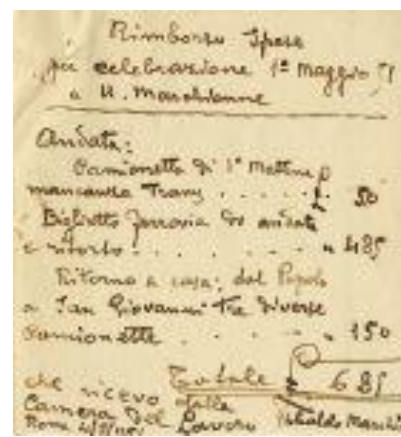 Rimborso Spese
per celebrazione 1º Maggio 51
a
Andata:
Camionetta di 1ª Mattina
mancanza Trams . . . . . £ 50
Biglietto ferrovia di andata
e ritorno . . . . . . " 485
Ritorno a casa; dal Popolo
a San Giovanni Tre diverse
camionette . . . . . " 150
Totale £ 685
che ricevo dalla
Camera del Lavoro
Roma